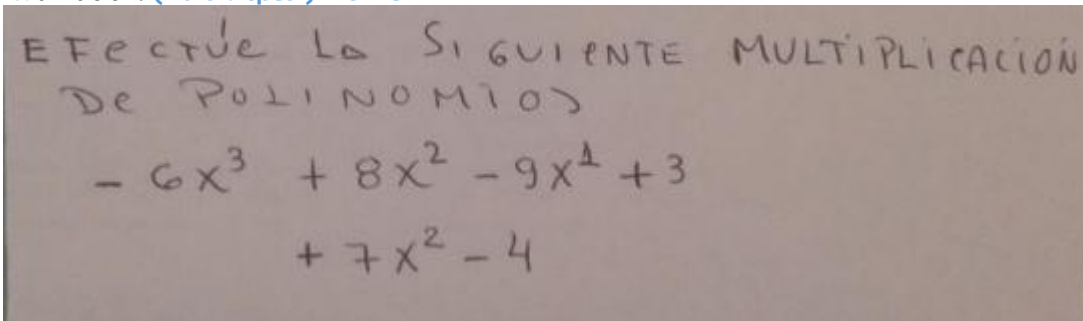 EFectúe La SiGUieNTE MULTiPLiCACiÓN
De POLINOMiOS
- 6x³ + 8x² - 9x¹ + 3
+ 7x² - 4